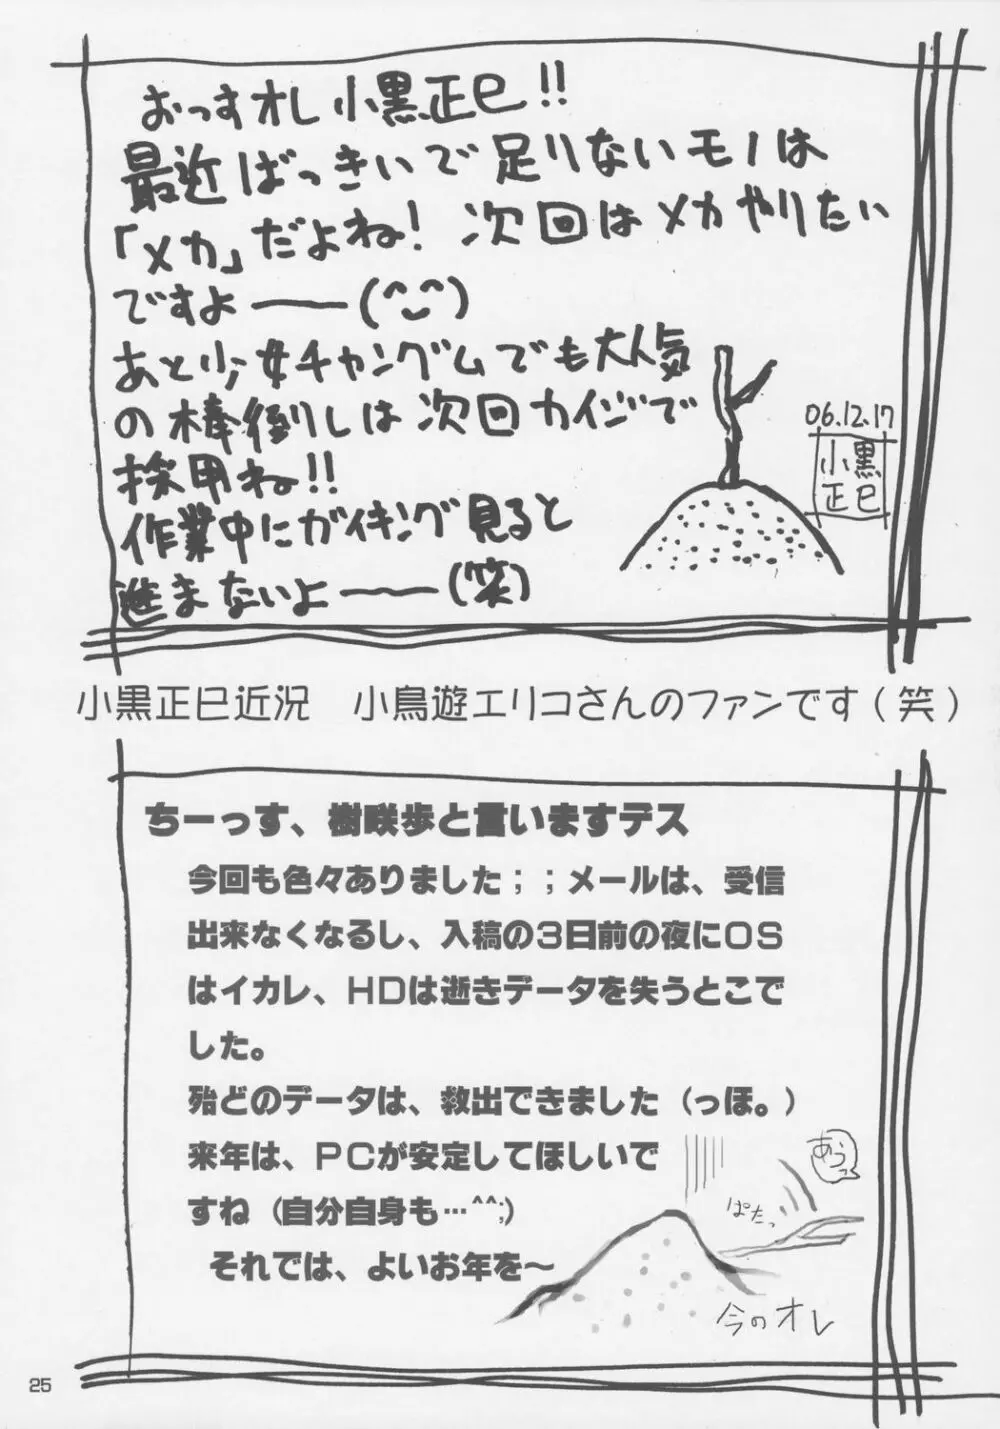 おっすオレ小黒正巳!!
最近ばっきぃで足りないモノは
「メカ」だよね! 次回はメカやりたい
ですよ──(^‿^)
あと少女チャングムでも大人気
の棒倒しは次回カイジで
採用ね!!
作業中にガイキング見ると
進まないよ──(笑)
06.12.17
小黒
正巳
小黒正巳近況 小鳥遊エリコさんのファンです(笑)
ちーっす、樹咲歩と言いますデス
今回も色々ありました;;メールは、受信
出来なくなるし、入稿の3日前の夜にOS
はイカレ、HDは逝きデータを失うとこで
した。
殆どのデータは、救出できました(っほ。)
来年は、PCが安定してほしいで
すね(自分自身も…^^;)
それでは、よいお年を〜
あうっ
ぱたっ
今のオレ
25